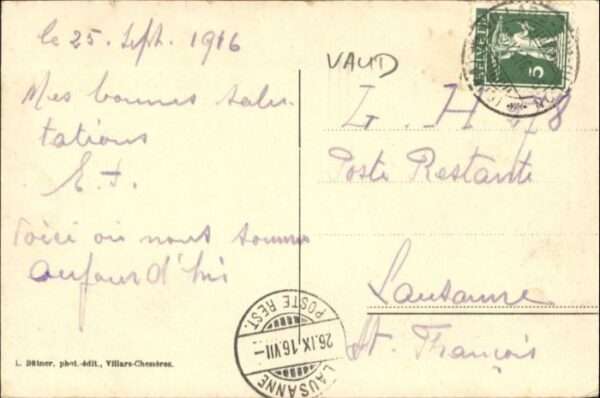 le 25. Sept. 1916
Mes bonnes salu-
tations
E. J.
Voici où nous sommes
aujourd'hui
L. Dätner, phot.-édit., Villars-Chesières.
VAUD
HELVETIA
5
L. H. 78
Poste Restante
Lausanne
St. François
LAUSANNE
26.IX.16.VII-
POSTE REST.